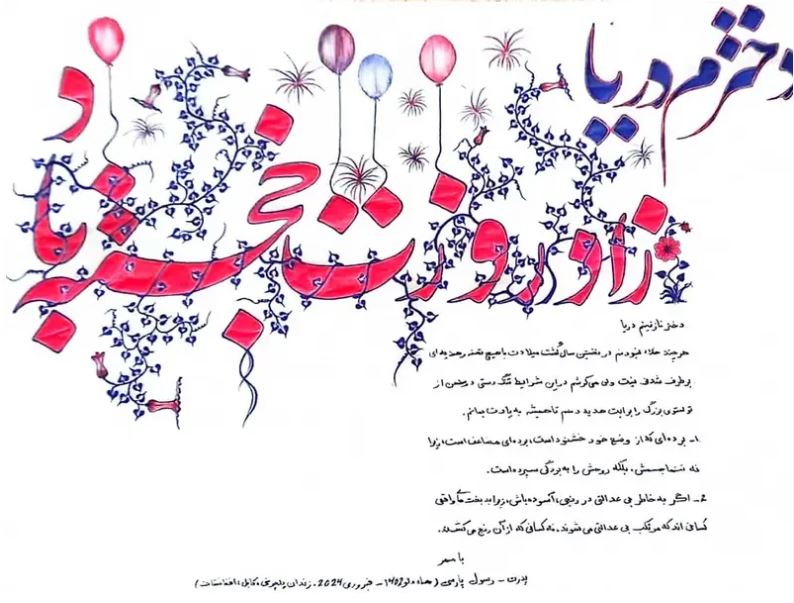 دخترم دریا
زادروزت خجسته باد
دختر نازنینم دریا
هرچند خلاء نبودنم در نخستین سال‌گشت میلادت با هیچ تحفه و هدیه‌ای
برطرف شدنی نیست ولی می‌کوشم در این شرایط تنگ‌دستی دو سخن از
تولستوی بزرگ را برایت هدیه دهم تا همیشه به یادت بمانم.
1- برده‌ای که از وضع خود خشنود است، برده‌ای مضاعف است، زیرا
نه تنها جسمش، بلکه روحش را به بردگی سپرده است.
2- اگر به خاطر بی عدالتی در رنجی، آسوده باش، زیرا بدبخت‌های واقعی
کسانی اند که مرتکب بی عدالتی می‌شوند، نه کسانی که از آن رنج می‌کشند.
با مهر
پدرت - رسول پارسی ( 1402 - فبروری 2024 - زندان پلچرخی، کابل، افغانستان)